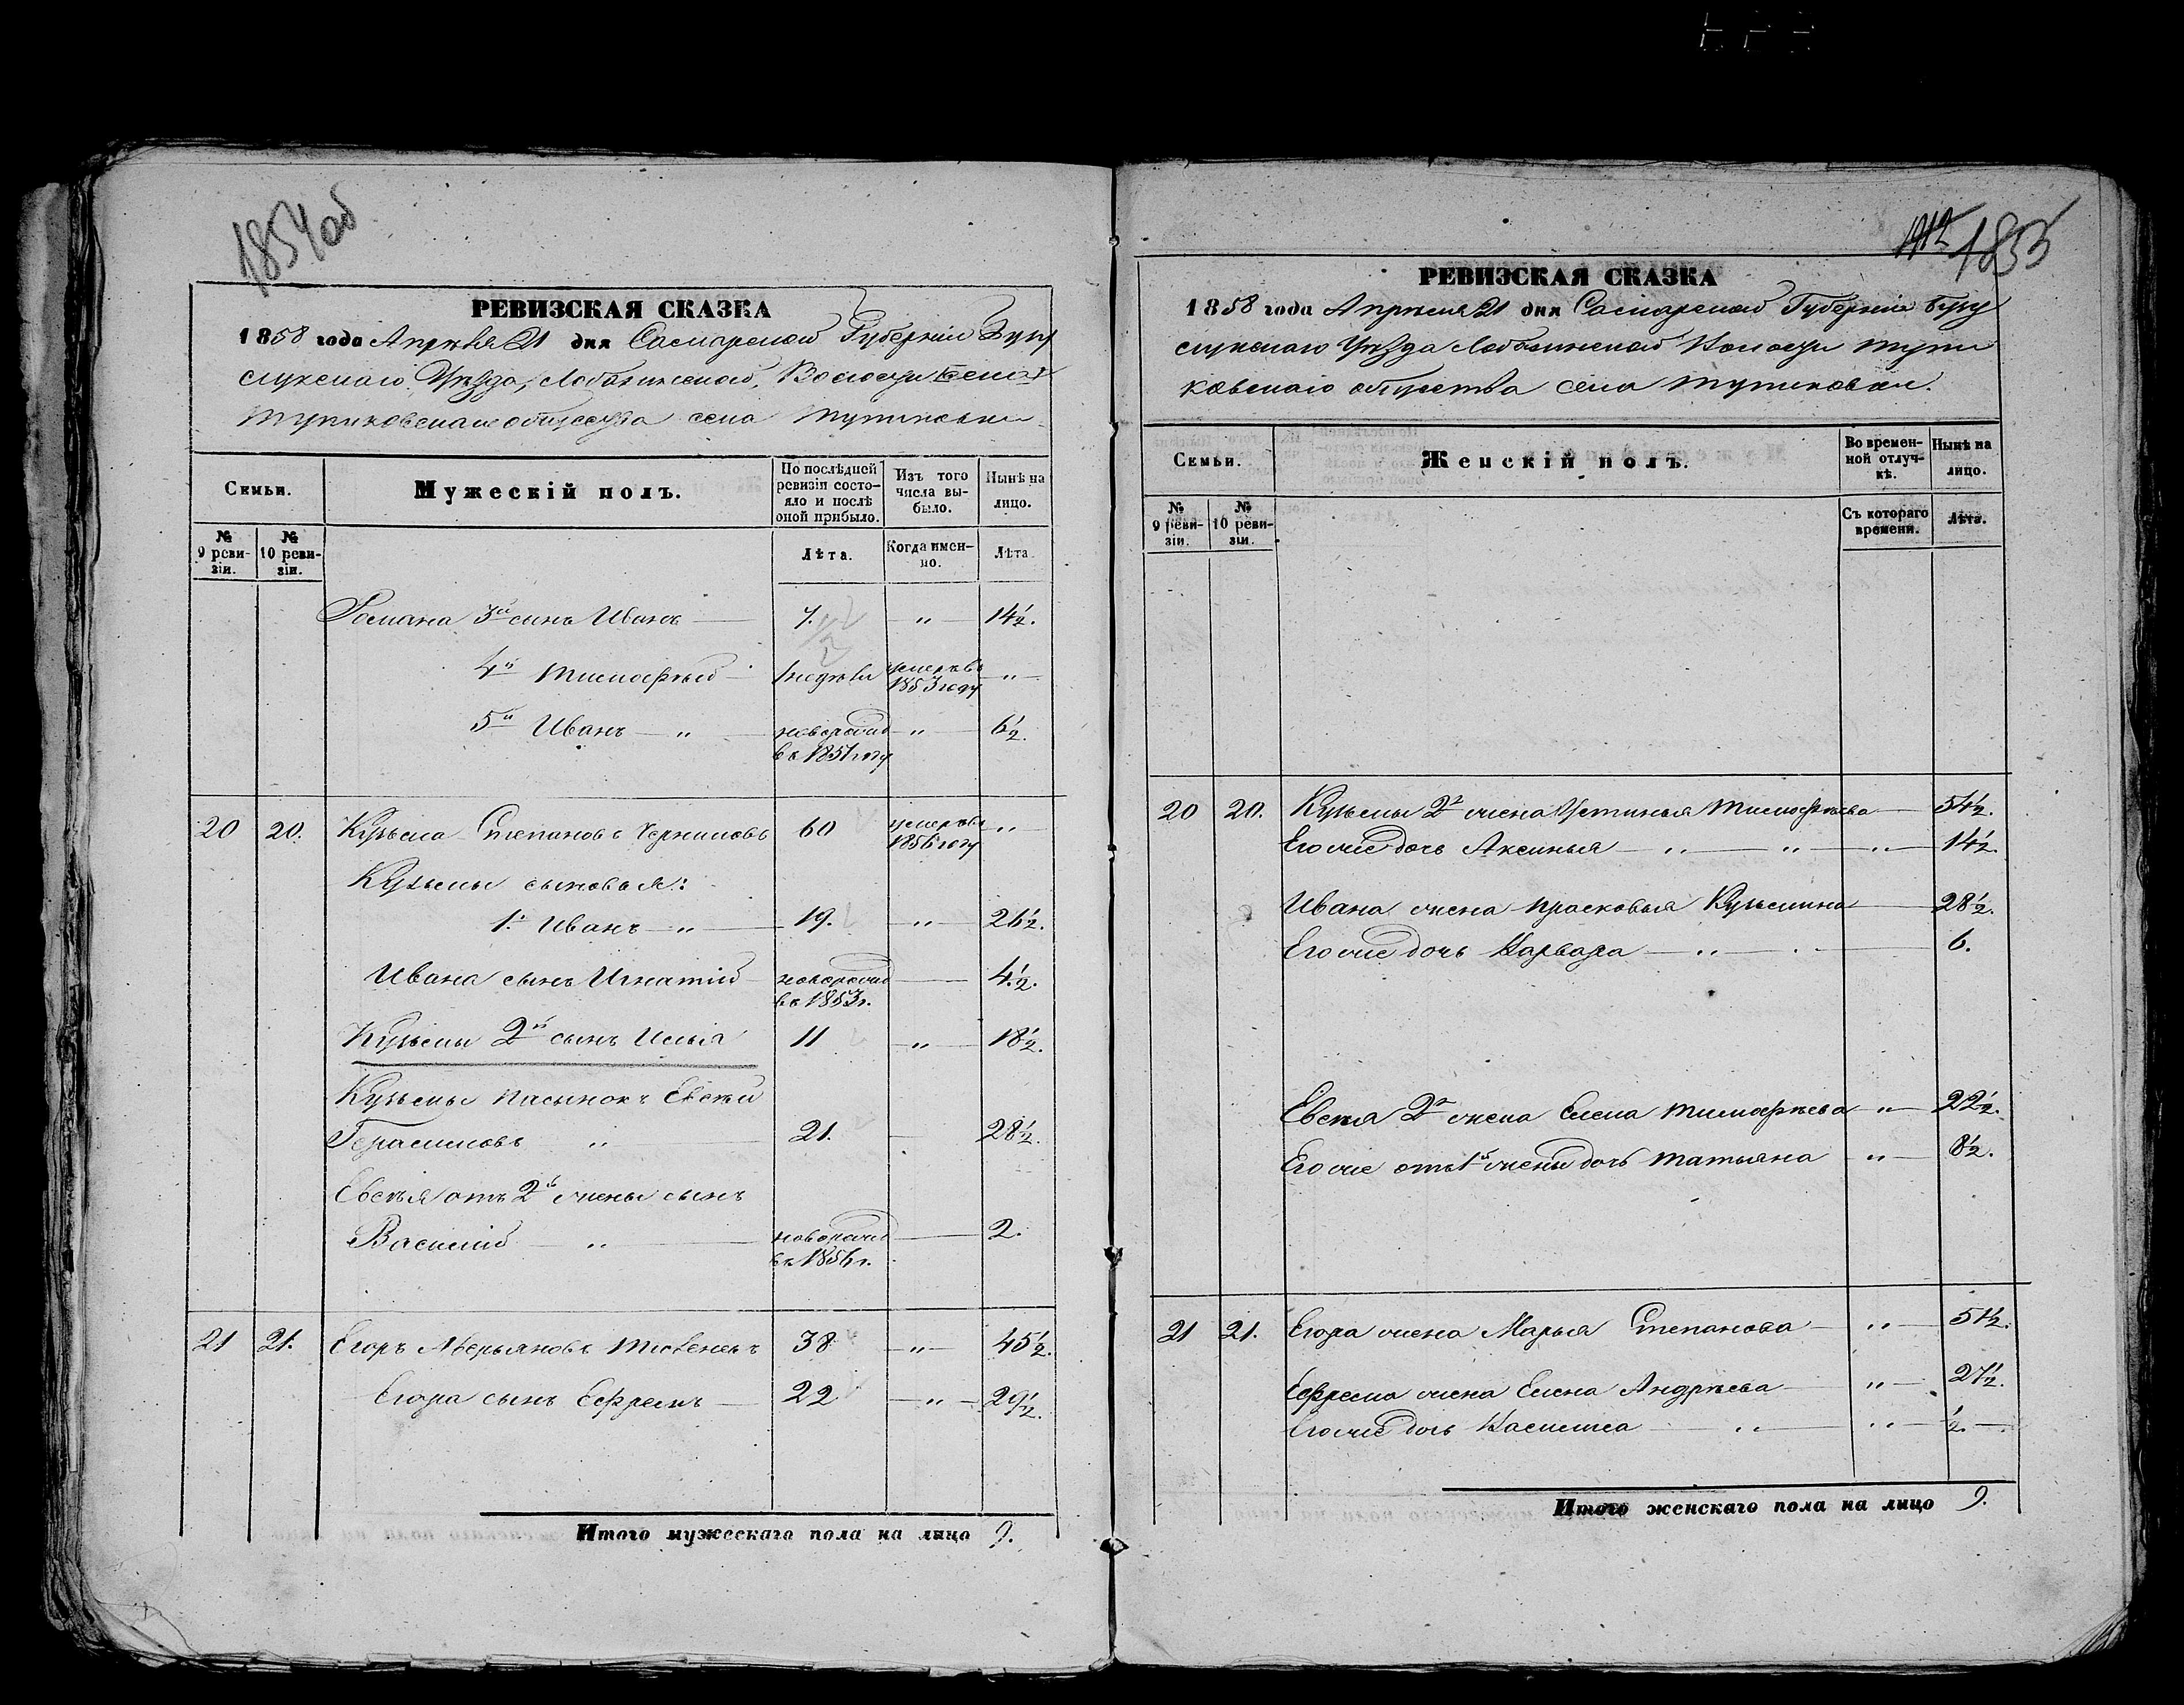 1854об
РЕВИЗСКАЯ СКАЗКА
1858 года Апрѣля 21 дня Самарской Губернiи Бугу
сулускаго Уѣзда, Лобазинской Волости села
общества села
Семьи.
Мужескiй полъ.
По послѣдней ревизiи состояло и послѣ оной прибыло.
Изъ того числа выбыло.
Нынѣ на лицо.
№ 9 ревизiи.
№ 10 ревизiи.
Лѣта.
Когда именно.
Лѣта.
Романа 3й сынъ Иванъ — 7. — " — 14½.
4й Тимофѣй — умеръ въ 1853 году — " —
5й Иванъ — " — новорожд въ 1851 году — " — 6½.
20 20. Кузьма Степановъ 60 умеръ въ 1856 году "
Кузьмы сыновья:
1й Иванъ — " — 19. — " — 26½.
Ивана сынъ Игнатiй — новорожд въ 1853 г. — 4½.
Кузьмы 2й сынъ Илья 11 — " — 18½.
Кузьмы пасынокъ Евсѣй
Герасимовъ " — 21. — 28½.
Евсѣя отъ 2й жены сынъ
Василiй " — новорожд въ 1856 г. — 2.
21 21. Егоръ Аверьяновъ 38 — " — 45½.
Егора сынъ Ефремъ — 22 — " — 29½.
Итого мужескаго пола на лицо 9.
1855
РЕВИЗСКАЯ СКАЗКА
1858 года Апрѣля 21 дня Самарской Губернiи Бугу
русланскаго Уѣзда Лобазинской Волости
общества села
Семьи.
Женскiй полъ.
Во временной отлучкѣ.
Нынѣ на лицо.
№ 9 ревизiи.
№ 10 ревизiи.
Съ котораго времени.
Лѣта.
20 20. Кузьмы 2я жена Устинья Тимофѣева — 54½.
Его же дочь Аксинья — " — " — " — 14½.
Ивана жена Прасковья Кузьмина — 28½.
Его же дочь Варвара — " — 6.
Евсѣя 2я жена Елена Тимофѣева — " — 22½.
Его же отъ 1й жены дочь Татьяна " — 8½.
21 21. Егора жена Марья Степанова — " — 51½.
Ефрема жена Елена Андрѣева — " — 27½.
Его же дочь Василиса — " — " — ½. —
Итого женскаго пола на лицо 9.